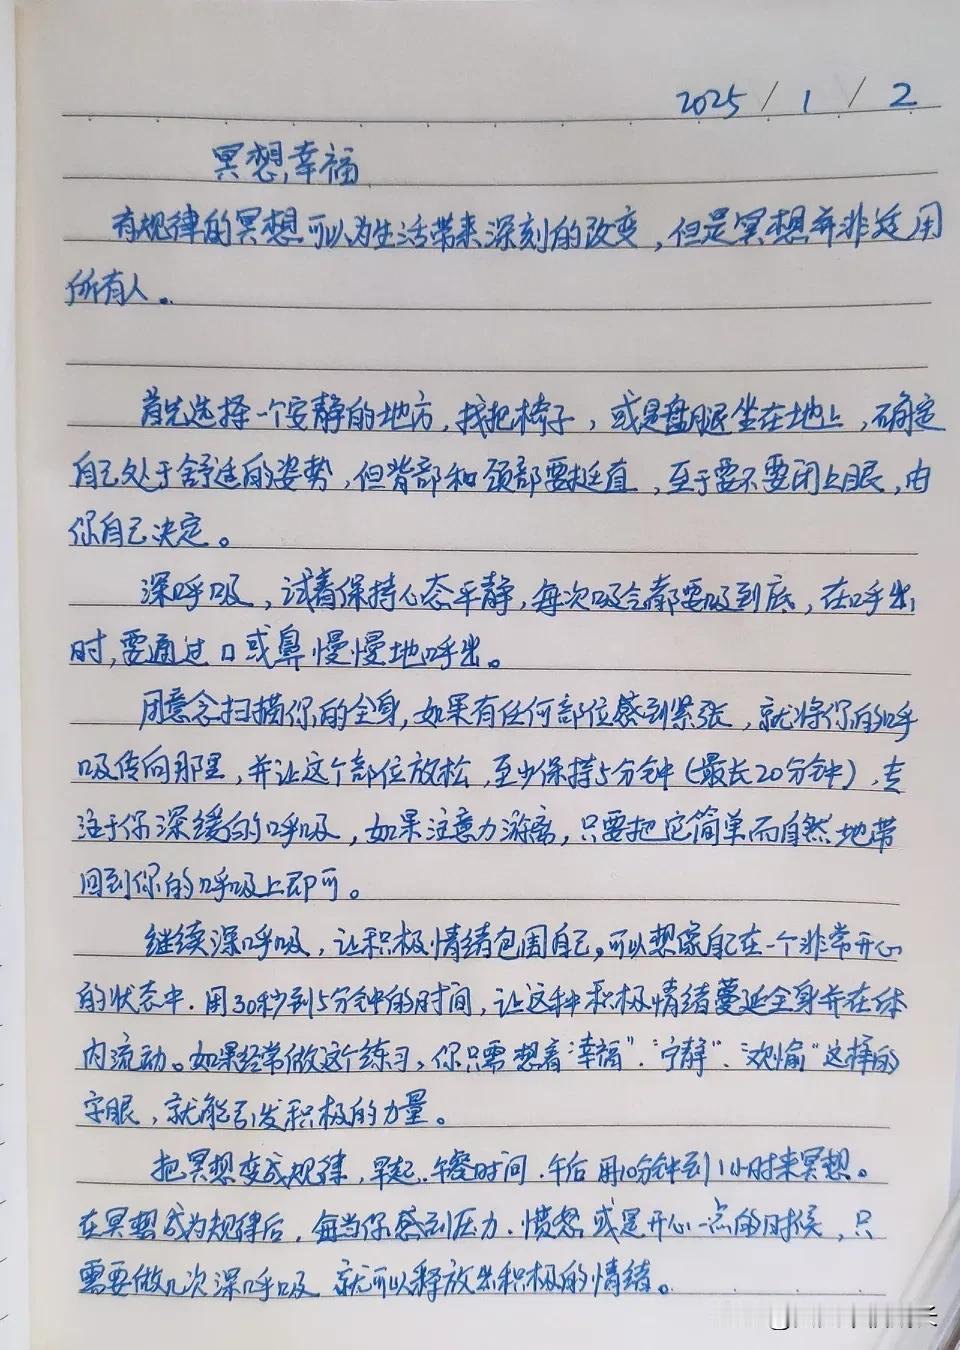 2025/1/2
冥想,幸福
有规律的冥想可以为生活带来深刻的改变,但是冥想并非适用
所有人。
首先选择一个安静的地方,找把椅子,或是盘腿坐在地上,确定
自己处于舒适的姿势,但背部和颈部要挺直,至于要不要闭上眼,由
你自己决定。
深呼吸,试着保持心态平静,每次吸气都要吸到底,在呼出
时,要通过口或鼻慢慢地呼出。
用意念扫描你的全身,如果有任何部位感到紧张,就将你的呼
吸传向那里,并让这个部位放松,至少保持5分钟(最长20分钟),专
注于你深缓的呼吸,如果注意力游离,只要把它简单而自然地带
回到你的呼吸上即可。
继续深呼吸,让积极情绪包围自己,可以想象自己在一个非常开心
的状态中.用30秒到5分钟的时间,让这种积极情绪蔓延全身并在体
内流动。如果经常做这个练习,你只需想着"幸福"、"宁静"、"欢愉"这样的
字眼,就能引发积极的力量。
把冥想变成规律,早起、午餐时间、午后用10分钟到1小时来冥想。
在冥想成为规律后,每当你感到压力.愤怒或是开心一点的时候,只
需要做几次深呼吸 就可以释放出积极的情绪。